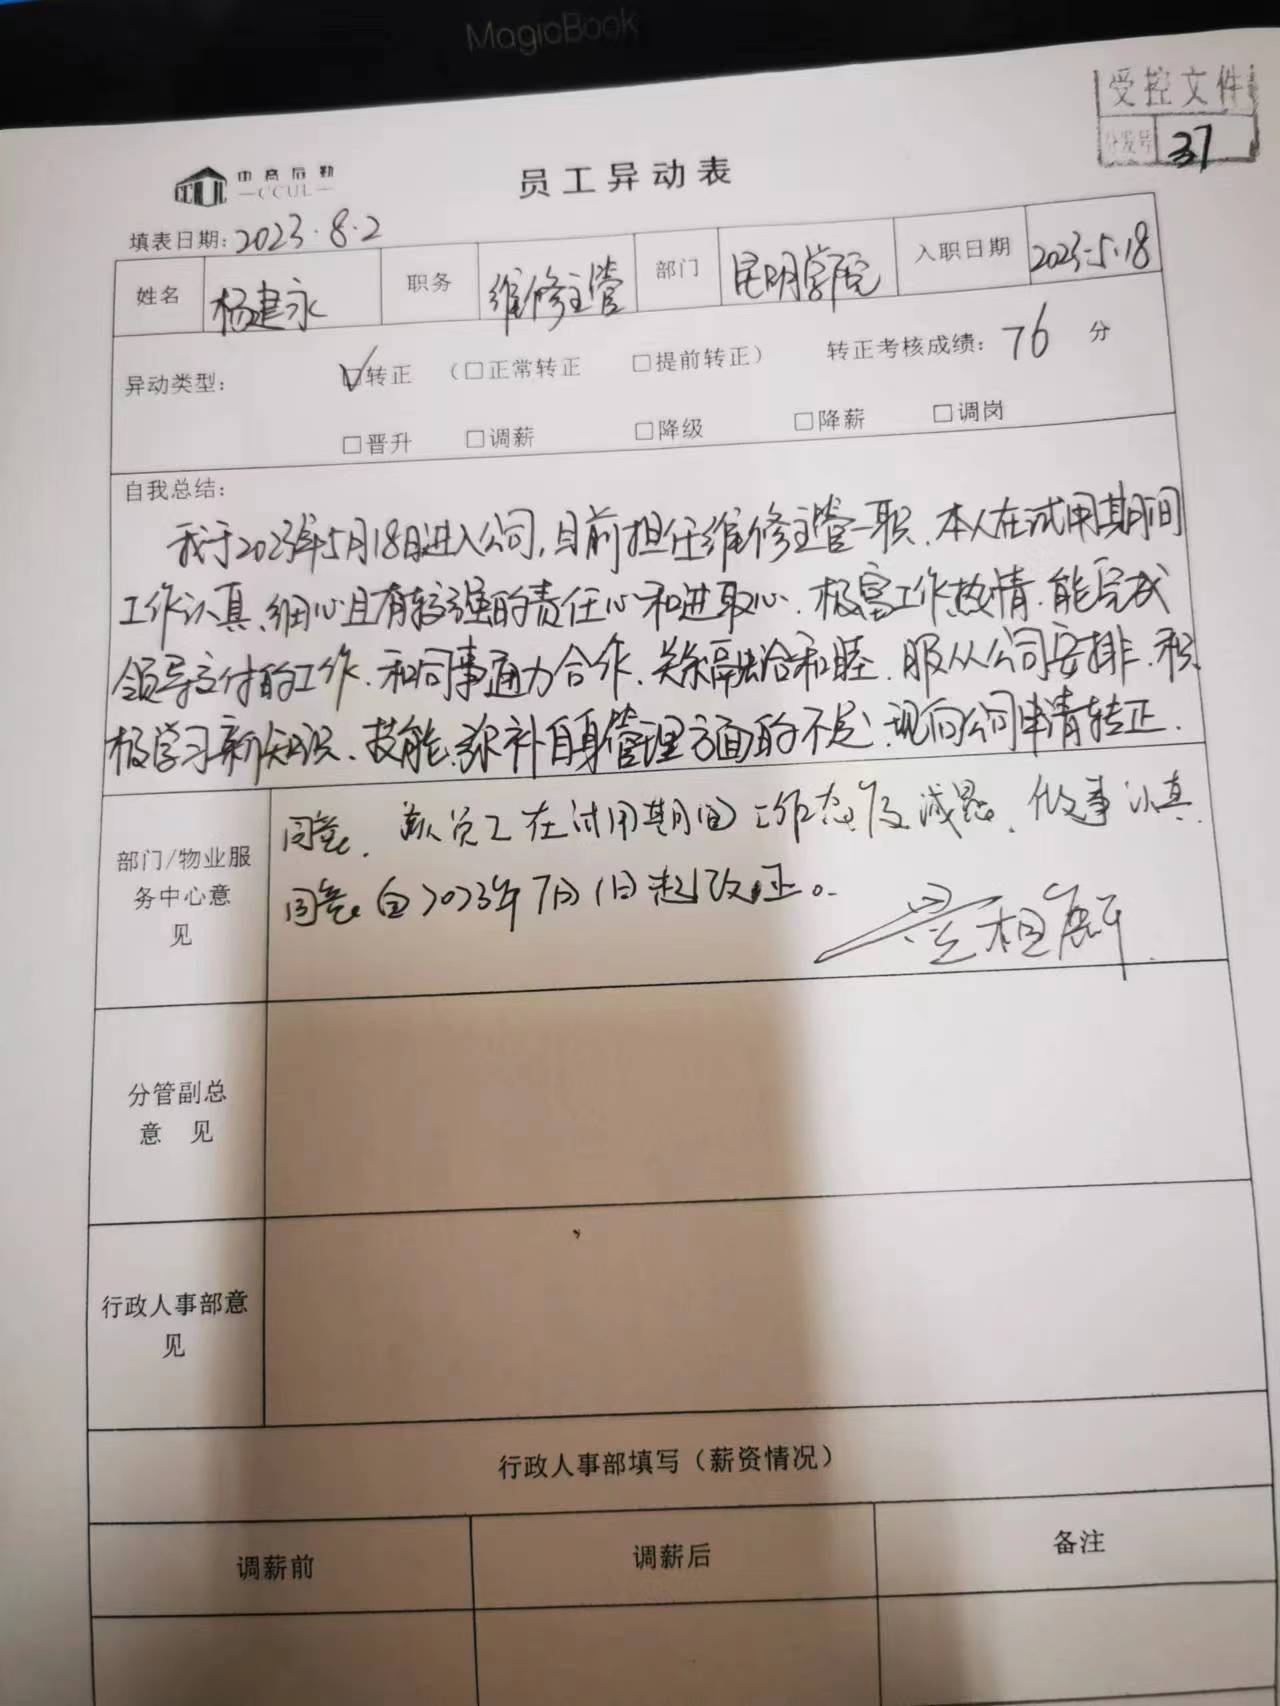 MagicBook
受控文件
分发号 37
中商后勤
CCUL
员工异动表
填表日期: 2023.8.2
姓名 杨建永 职务 维修主管 部门 昆明学院 入职日期 2023.5.18
异动类型: ☑转正 (□正常转正 □提前转正) 转正考核成绩: 76 分
□晋升 □调薪 □降级 □降薪 □调岗
自我总结:
我于2023年5月18日进入公司,目前担任维修主管一职.本人在试用期间
工作认真、细心且有较强的责任心和进取心.极富工作热情.能完成
领导交付的工作.和同事通力合作.关系融洽和睦.服从公司安排.积
极学习新知识、技能.弥补自身管理方面的不足.现向公司申请转正.
部门/物业服务中心意见
同意.该员工在试用期间工作态度诚恳.做事认真
同意自2023年7月1日起改正。
分管副总
意 见
行政人事部意
见
行政人事部填写(薪资情况)
调薪前 调薪后 备注